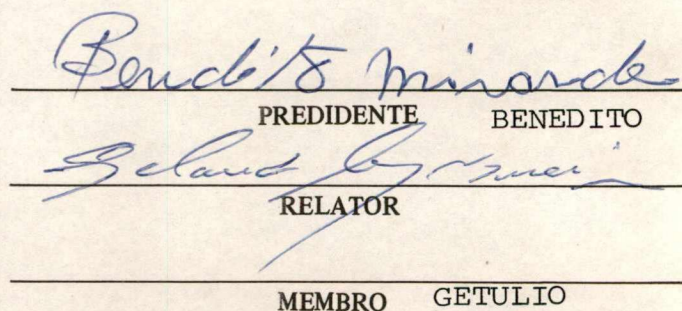 Benedito Miranda
PREDIDENTE BENEDITO
RELATOR
MEMBRO GETULIO